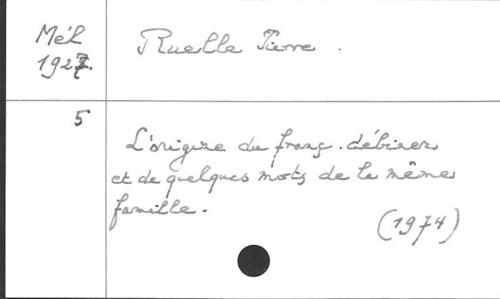 Mél
1927.
Ruelle Pierre.
5
L'origine du franç. débiner
et de quelques mots de la même
famille.
(1974)